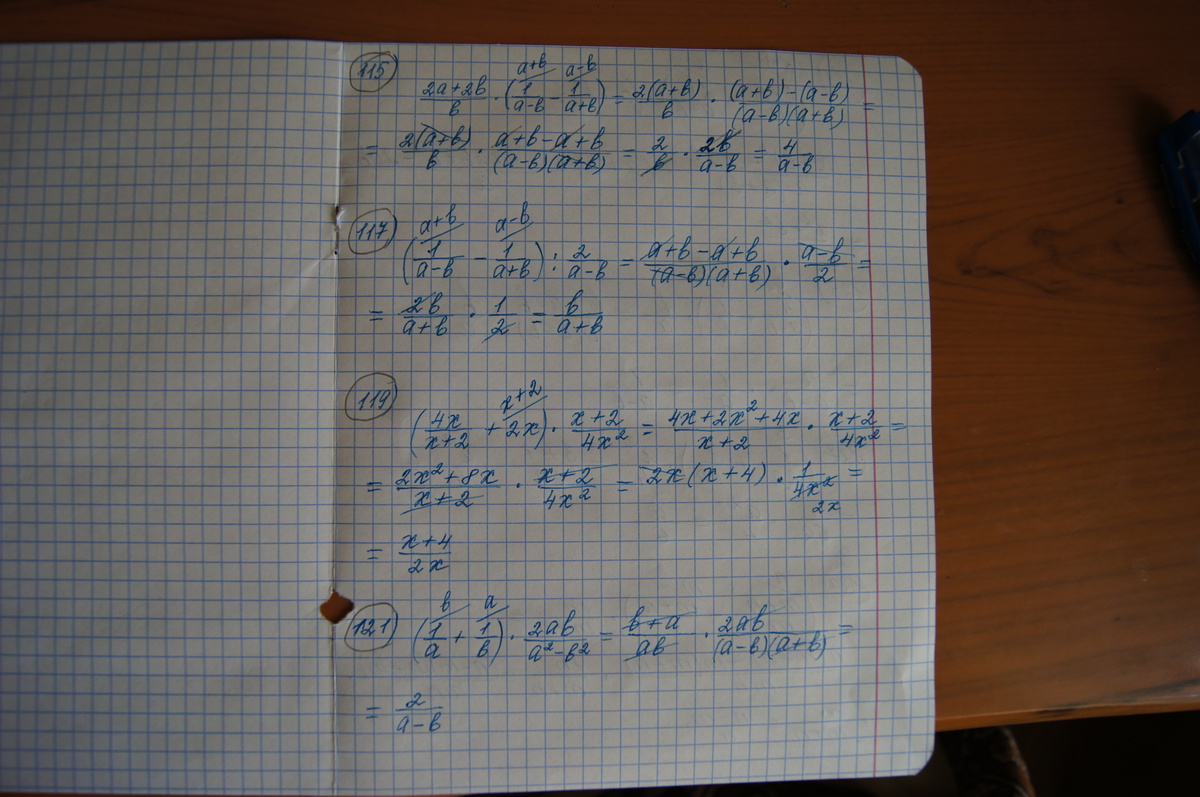 115
a+b a-b
(2a+2b)/b · (1/(a-b) - 1/(a+b)) = 2(a+b)/b · ((a+b)-(a-b))/((a-b)(a+b)) =
= 2(a+b)/b · (a+b-a+b)/((a-b)(a+b)) = 2/b · 2b/(a-b) = 4/(a-b)
117
a+b a-b
(1/(a-b) - 1/(a+b)) : 2/(a-b) = (a+b-a+b)/((a-b)(a+b)) · (a-b)/2 =
= 2b/(a+b) · 1/2 = b/(a+b)
119
x+2
(4x/(x+2) + 2x) · (x+2)/4x² = (4x+2x²+4x)/(x+2) · (x+2)/4x² =
= (2x²+8x)/(x+2) · (x+2)/4x² = 2x(x+4) · 1/4x² =
2x
= (x+4)/2x
121
b a
(1/a + 1/b) · 2ab/(a²-b²) = (b+a)/ab · 2ab/((a-b)(a+b)) =
= 2/(a-b)